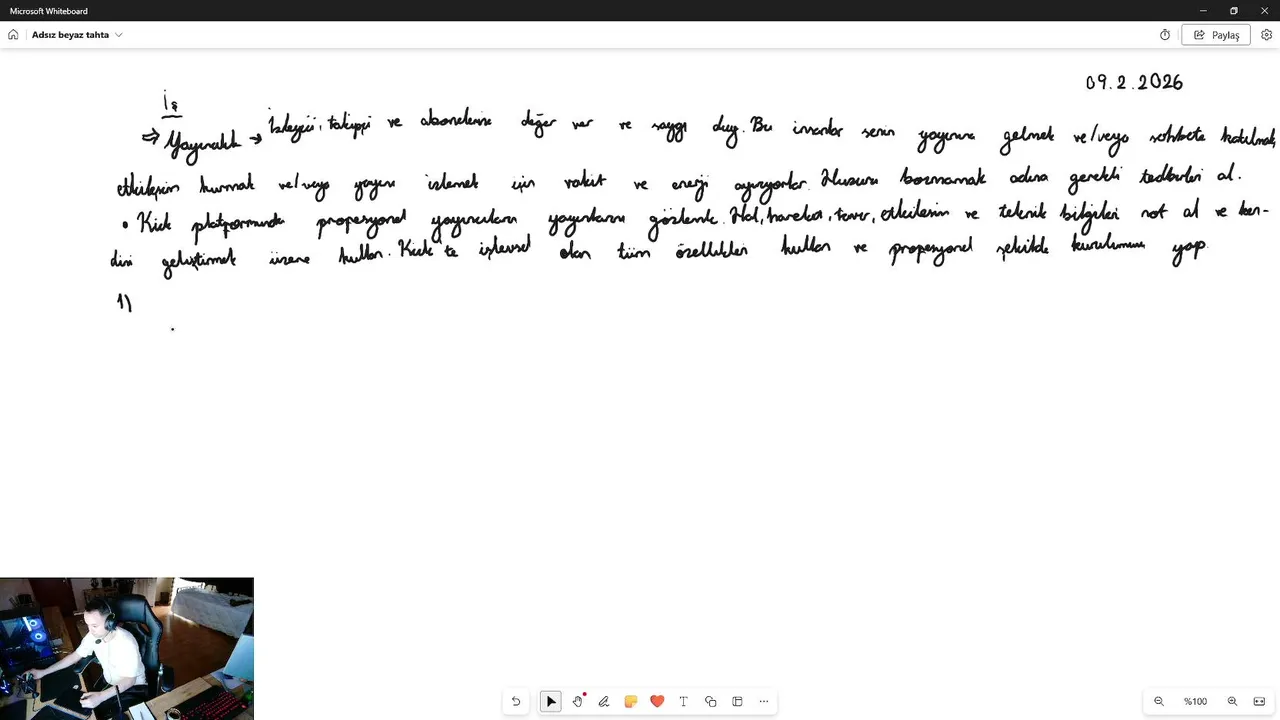 Microsoft Whiteboard
Adsız beyaz tahta
Paylaş
09.2.2026
İş
⇒ Yayıncılık → İzleyici, takipçi ve abonelerine değer ver ve saygı duy. Bu insanlar senin yayınına gelmek ve/veya sohbete katılmak,
etkileşim kurmak ve/veya yayını izlemek için vakit ve enerji ayırıyorlar. Huzuru bozmamak adına gerekli tedbirleri al.
• Kick platformunda propesyonel yayıncıların yayınlarını gözlemle. Hal, hareket, tavır, etkileşim ve teknik bilgileri not al ve ken-
dini geliştirmek üzere kullan. Kick'te işlevsel olan tüm özellikleri kullan ve propesyonel şekilde kurulumunu yap.
1)
%100